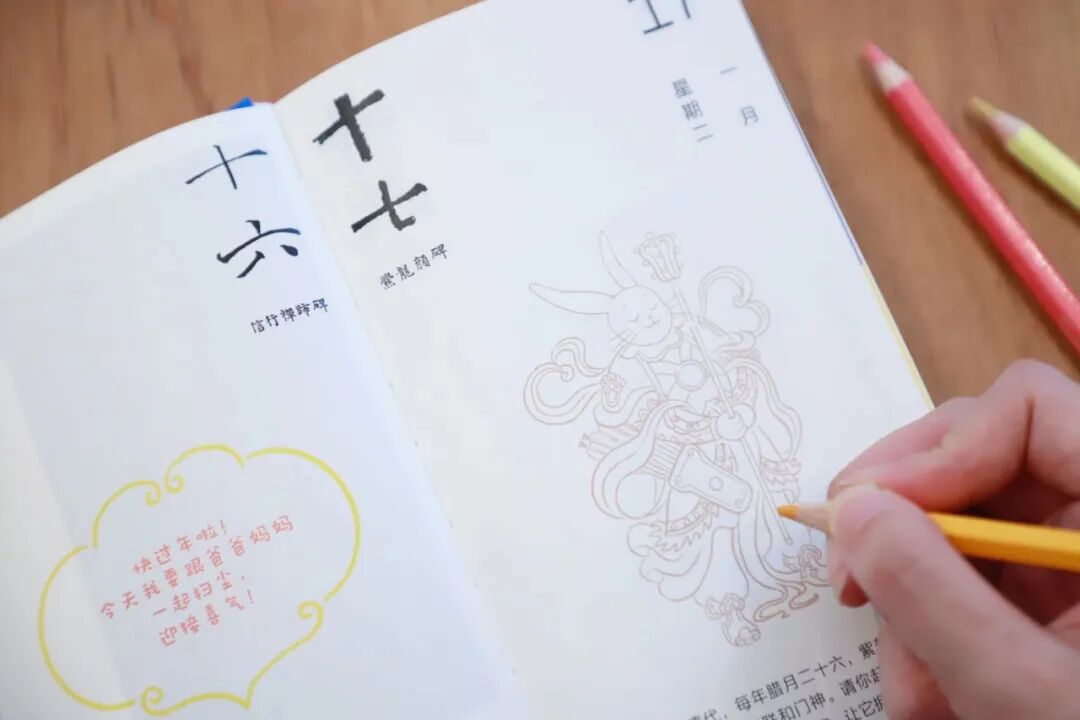 十六
信行禪師碑
快过年啦！
今天我要跟爸爸妈妈
一起扫尘，
迎接喜气！
十七
爨龍顏碑
17
一月
星期二
清代，每年腊月二十六，紫
联和门神。请你
让它